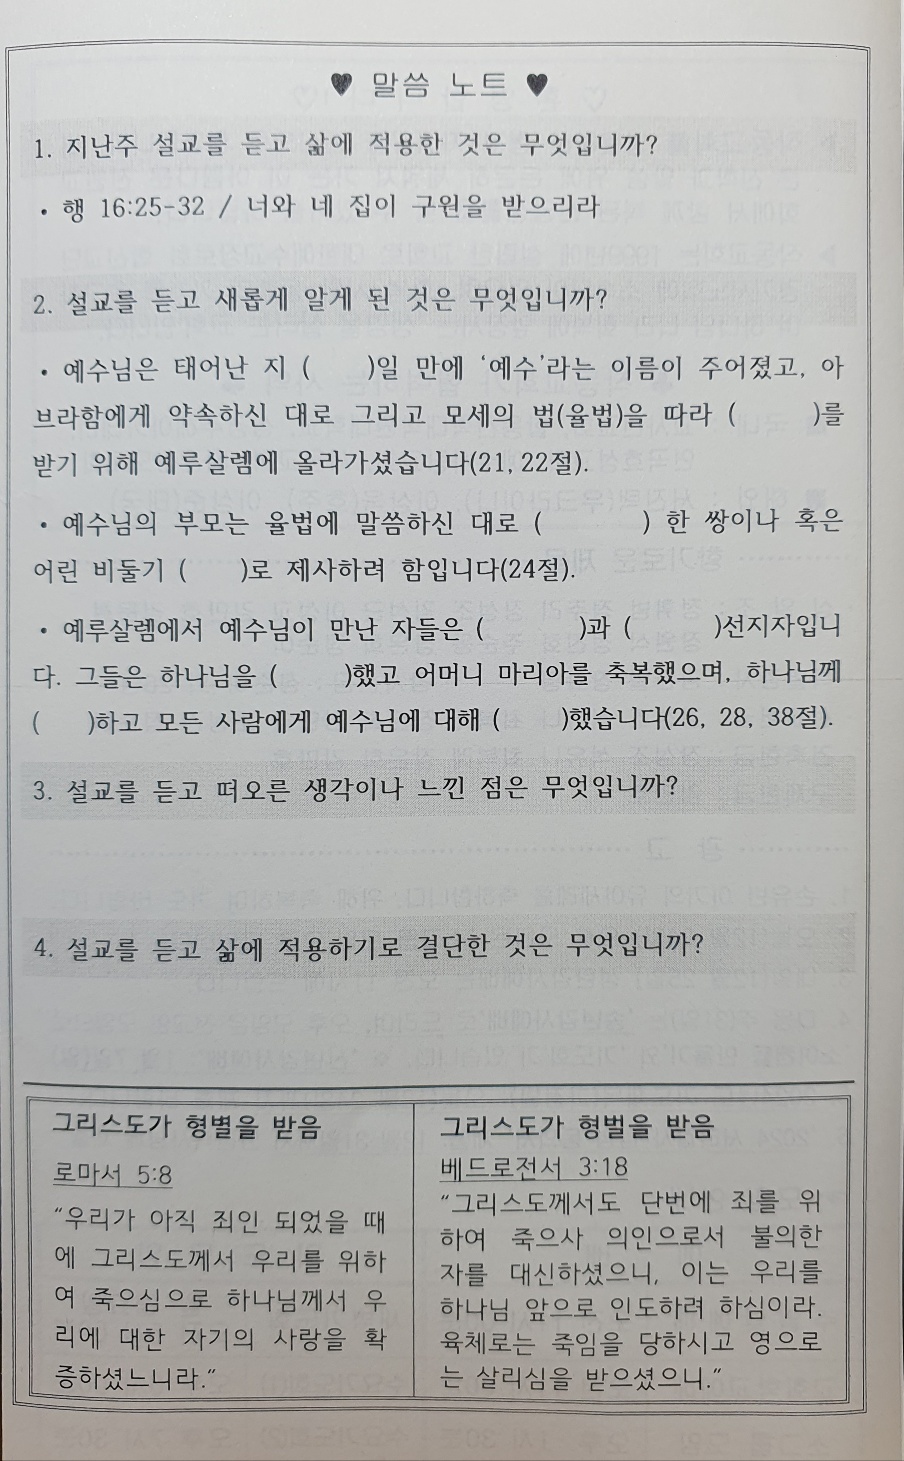 ♥ 말씀 노트 ♥
1. 지난주 설교를 듣고 삶에 적용한 것은 무엇입니까?
• 행 16:25-32 / 너와 네 집이 구원을 받으리라
2. 설교를 듣고 새롭게 알게 된 것은 무엇입니까?
• 예수님은 태어난 지 (    )일 만에 ‘예수’라는 이름이 주어졌고, 아
브라함에게 약속하신 대로 그리고 모세의 법(율법)을 따라 (      )를
받기 위해 예루살렘에 올라가셨습니다(21, 22절).
• 예수님의 부모는 율법에 말씀하신 대로 (        ) 한 쌍이나 혹은
어린 비둘기 (    )로 제사하려 함입니다(24절).
• 예루살렘에서 예수님이 만난 자들은 (        )과 (       )선지자입니
다. 그들은 하나님을 (      )했고 어머니 마리아를 축복했으며, 하나님께
(    )하고 모든 사람에게 예수님에 대해 (     )했습니다(26, 28, 38절).
3. 설교를 듣고 떠오른 생각이나 느낀 점은 무엇입니까?
4. 설교를 듣고 삶에 적용하기로 결단한 것은 무엇입니까?
그리스도가 형별을 받음
로마서 5:8
“우리가 아직 죄인 되었을 때
에 그리스도께서 우리를 위하
여 죽으심으로 하나님께서 우
리에 대한 자기의 사랑을 확
증하셨느니라.”
그리스도가 형벌을 받음
베드로전서 3:18
“그리스도께서도 단번에 죄를 위
하여 죽으사 의인으로서 불의한
자를 대신하셨으니, 이는 우리를
하나님 앞으로 인도하려 하심이라.
육체로는 죽임을 당하시고 영으로
는 살리심을 받으셨으니.”